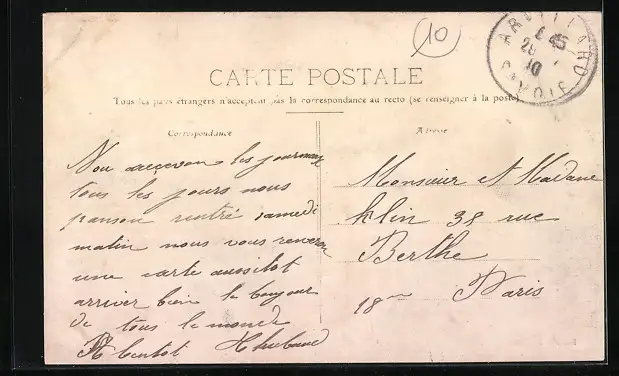 10
ARVILLARD
SAVOIE
6 45
28
10
CARTE POSTALE
Tous les pays étrangers n'acceptent pas la correspondance au recto (se renseigner à la poste)
Correspondance
Adresse
Nou recevon les journaux
tous les jours nous
panson rentré samedi
matin nous vous reveron
une carte aussitot
arriver bien le bonjour
de tous le monde
A bentot Thiebaud
Monsieur et Madame
Klin 38 rue
Berthe
18me Paris